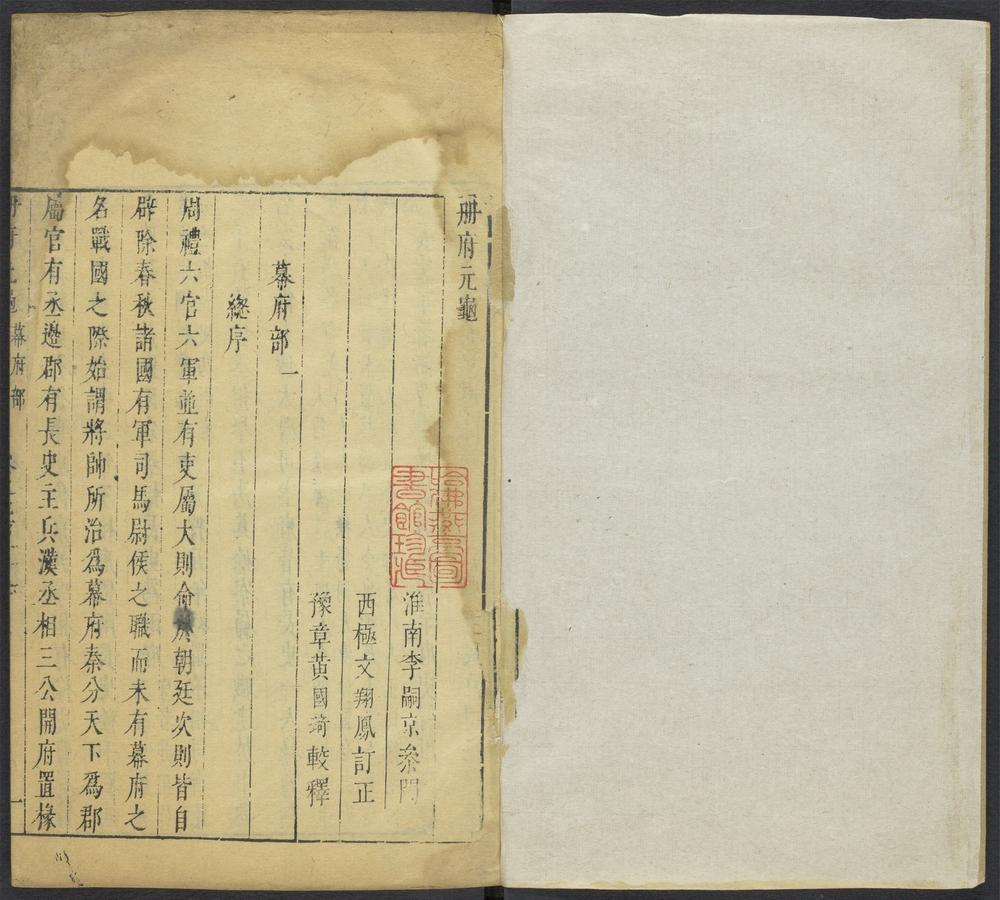 册府元龜
淮南李嗣京叅閱
西極文翔鳳訂正
豫章黃國琦較釋
幕府部一
總序
周禮六官六軍並有吏屬大則命於朝廷次則皆自
辟除春秋諸國有軍司馬尉侯之職而未有幕府之
名戰國之際始謂將帥所治爲幕府秦分天下爲郡
屬官有丞邊郡有長史主兵漢丞相三公開府置掾
幕府部
一
哈佛燕京圖書館珍藏